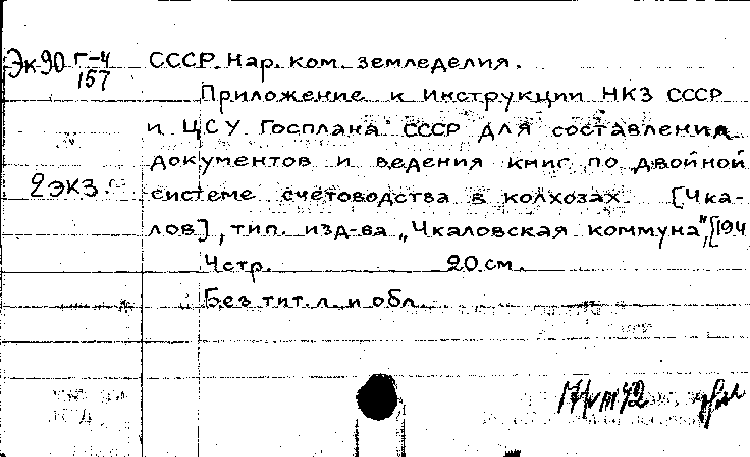 Эк90 Г-4
157
СССР. Нар. ком. земледелия.
Приложение к инструкции НКЗ СССР
и ЦСУ Госплана СССР для составления
документов и ведения книг по двойной
2 экз.
системе счетоводства в колхозах. [Чка-
лов], тип. изд-ва „Чкаловская коммуна", [194
4 стр. 20 см.
Без тит. л. и обл.
17/VIII 42